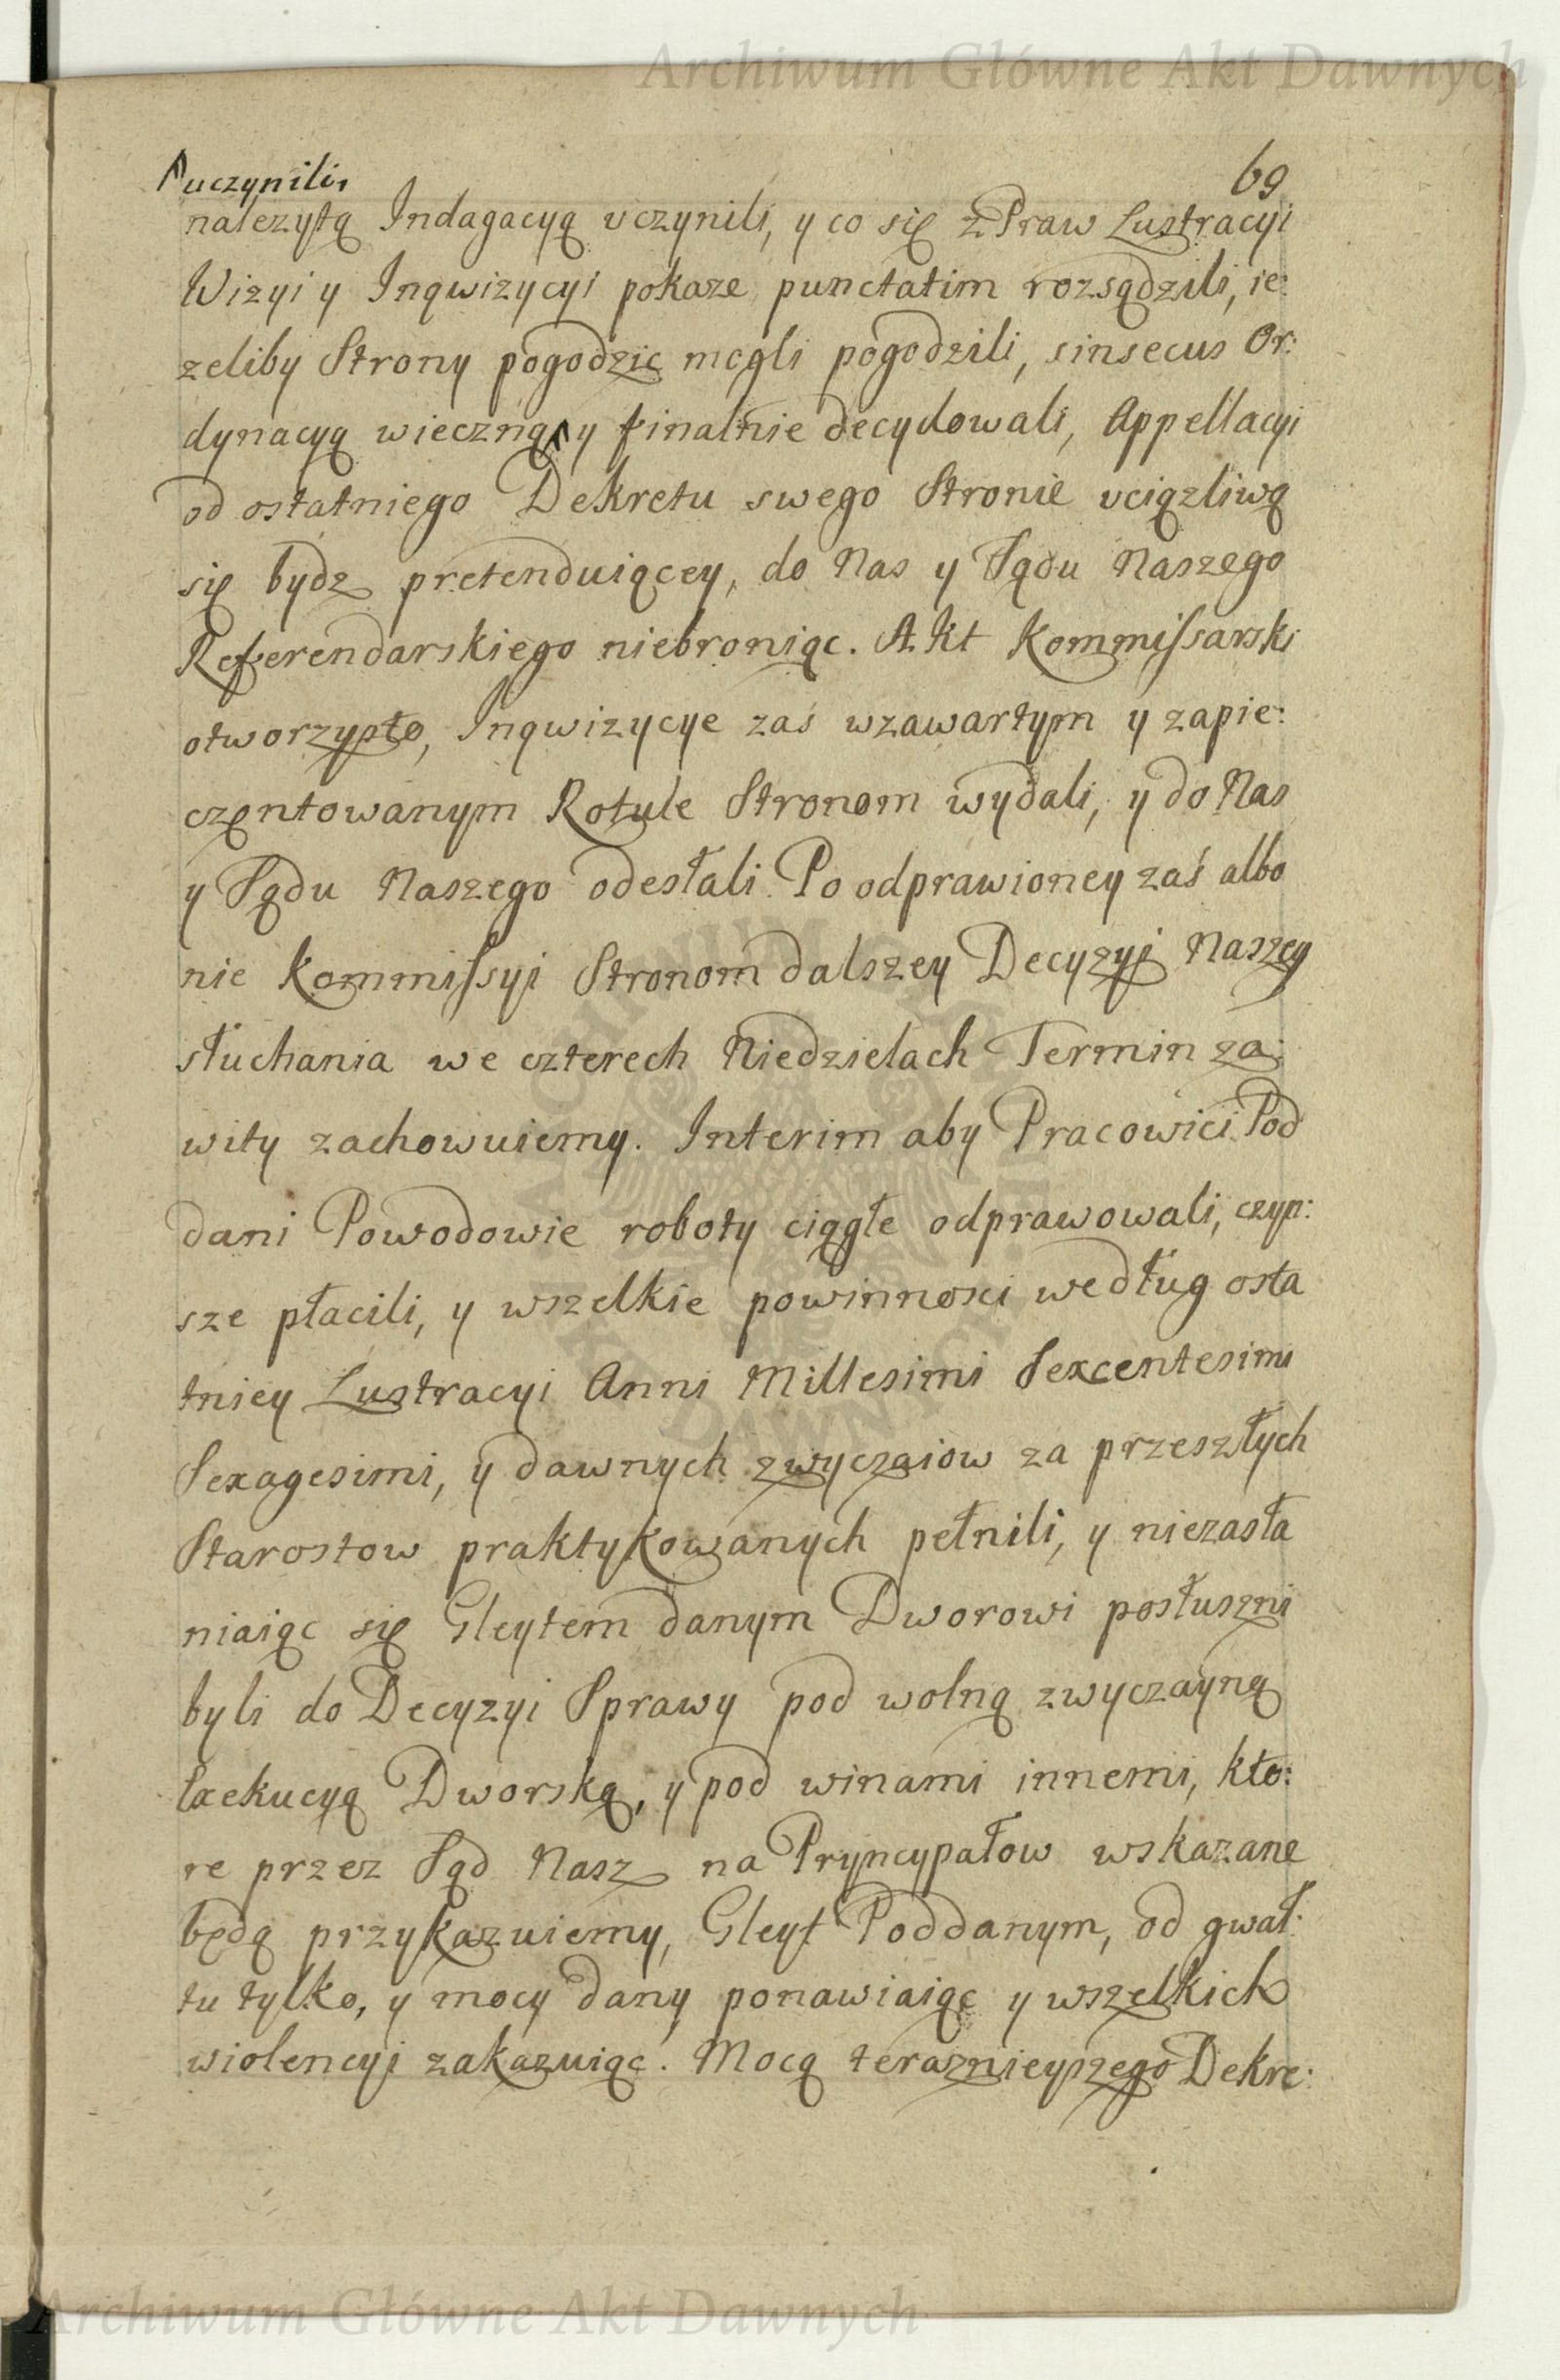 Archiwum Główne Akt Dawnych
69
uczynili,
nalezytą Indagacyą uczynili, y co się z Praw Lustracyi
Wizyi y Inqwizycyi pokaze punctatim rozsądzili, ie:
zeliby Strony pogodzic mogli pogodzili, sinsecus Or:
dynacyą wieczną y finalnie decydowali, Appellacyi
od ostatniego Dekretu swego Stronie uciązliwą
się bydz pretenduiącey, do Nas y Sądu Naszego
Referendarskiego niebroniąc. Akt Kommissarski
otworzysto, Inqwizycye zaś wzawartym y zapie:
czentowanym Rotule Stronom wydali, y do Nas
y Sądu Naszego odesłali. Po odprawioney zaś albo
nie Kommissyi Stronom dalszey Decyzyi Naszey
słuchania we czterech Niedzielach Termin za:
wity zachowuiemy. Interim aby Pracowici Pod
dani Powodowie roboty ciągłe odprawowali, czyn:
sze płacili, y wszelkie powinnosci według osta
tniey Lustracyi Anni Millesimi Sexcentesimi
Sexagesimi, y dawnych zwyczaiow za przeszłych
Starostow praktykowanych pełnili, y niezasła
niaiąc się Gleytem danym Dworowi posłuszni
byli do Decyzyi Sprawy pod wolną zwyczayną
Exekucyą Dworską, y pod winami innemi, kto:
re przez Sąd Nasz na Pryncypałow wskazane
będą przykazuiemy, Gleyt Poddanym, od gwał:
tu tylko, y mocy dany ponawiaiąc y wszelkich
wiolencyi zakazuiąc. Mocą teraznieyszego Dekre:
Archiwum Główne Akt Dawnych